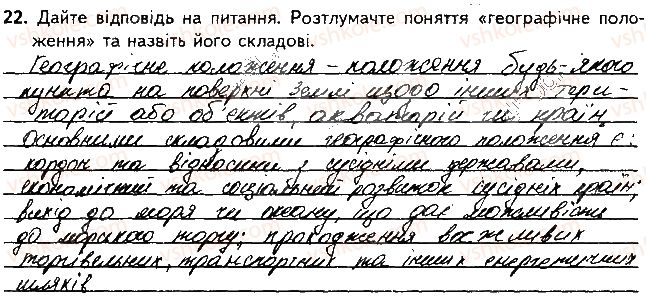 22. Дайте відповідь на питання. Розтлумачте поняття «географічне поло-
ження» та назвіть його складові.
Географічне положення – положення будь-якого
пункта на поверхні Землі щодо інших тери-
торій або об'єктів, акваторій чи країн.
Основними складовими географічного положення є:
кордон та відносини з сусідніми державами,
економічний та соціальний розвиток сусідніх країн;
вихід до моря чи океану, що дає можливість
до морського торгу; проходження важливих
торгівельних, транспортних та інших енергетичних
шляхів